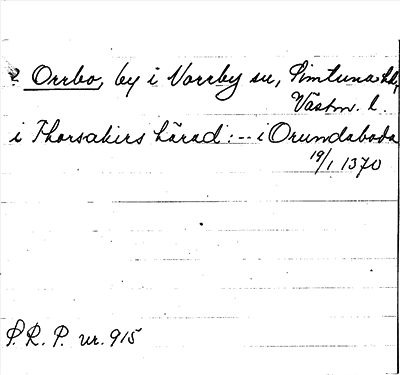 ? Orrbo, by i Norrby sn, Simtuna hd,
Västm. l.
i Thorsakirs härad: -- i Orundaboda
19/1 1370
P. R. P. nr. 915